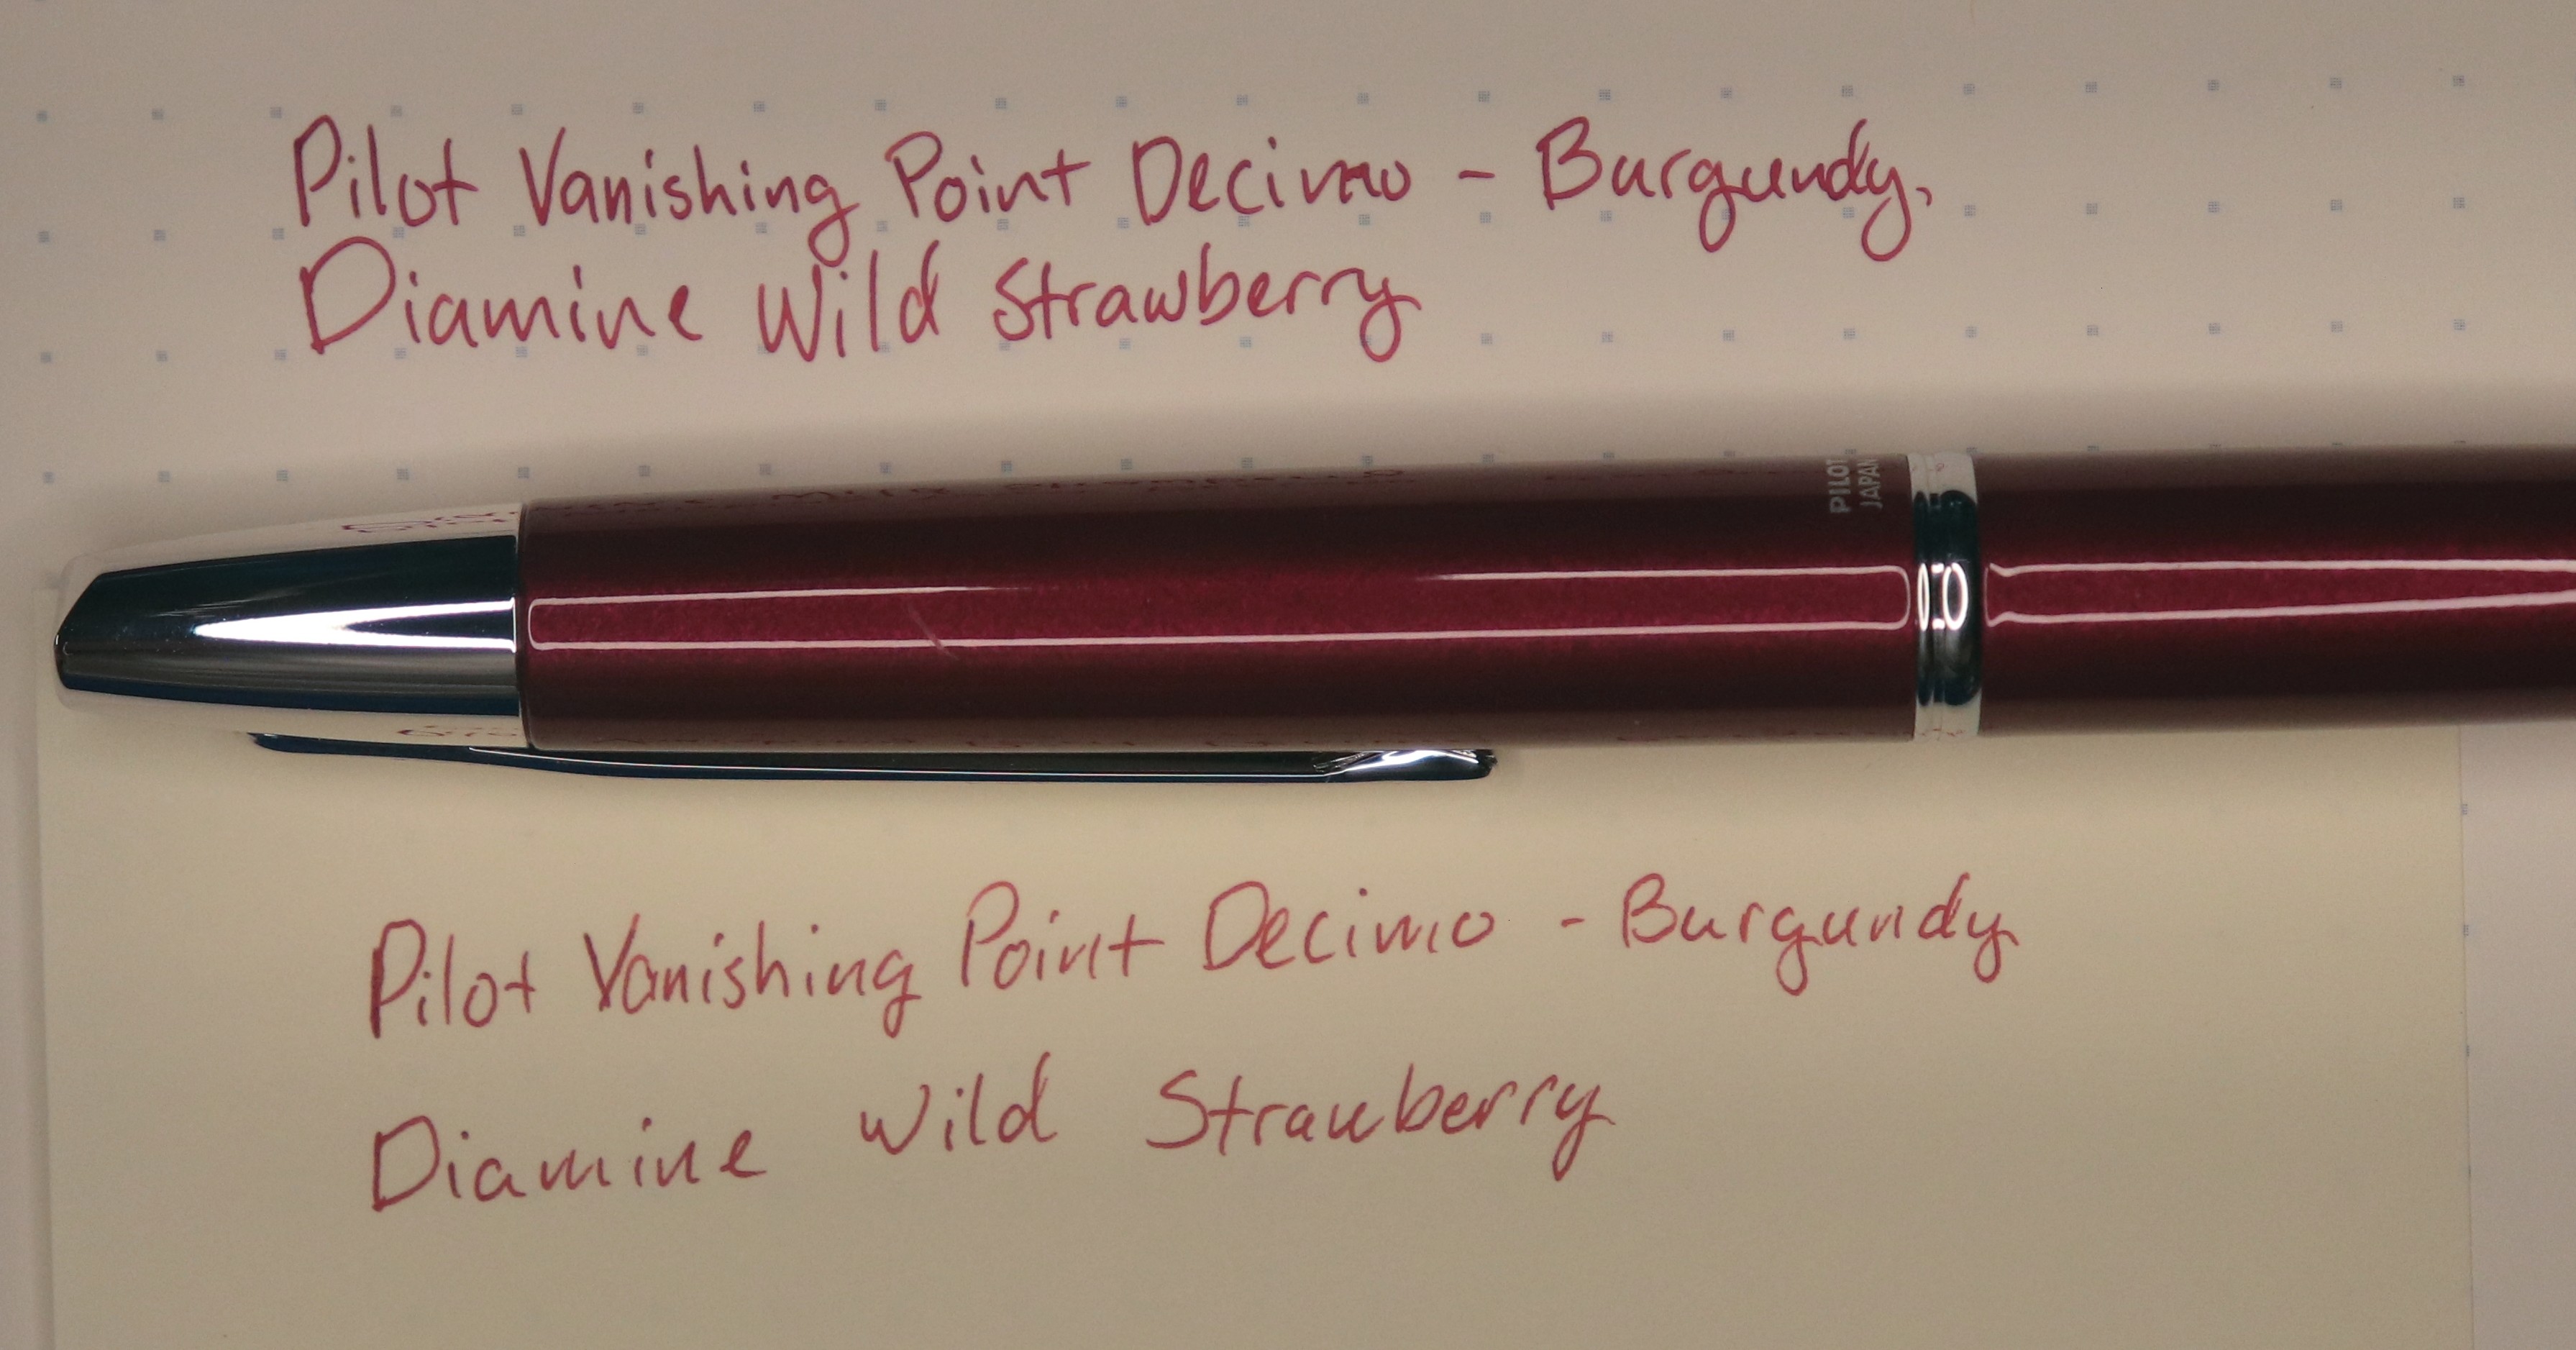 Pilot Vanishing Point Decimo - Burgundy,
Diamine Wild Strawberry
PILOT
JAPAN
Pilot Vanishing Point Decimo - Burgundy
Diamine Wild Strawberry